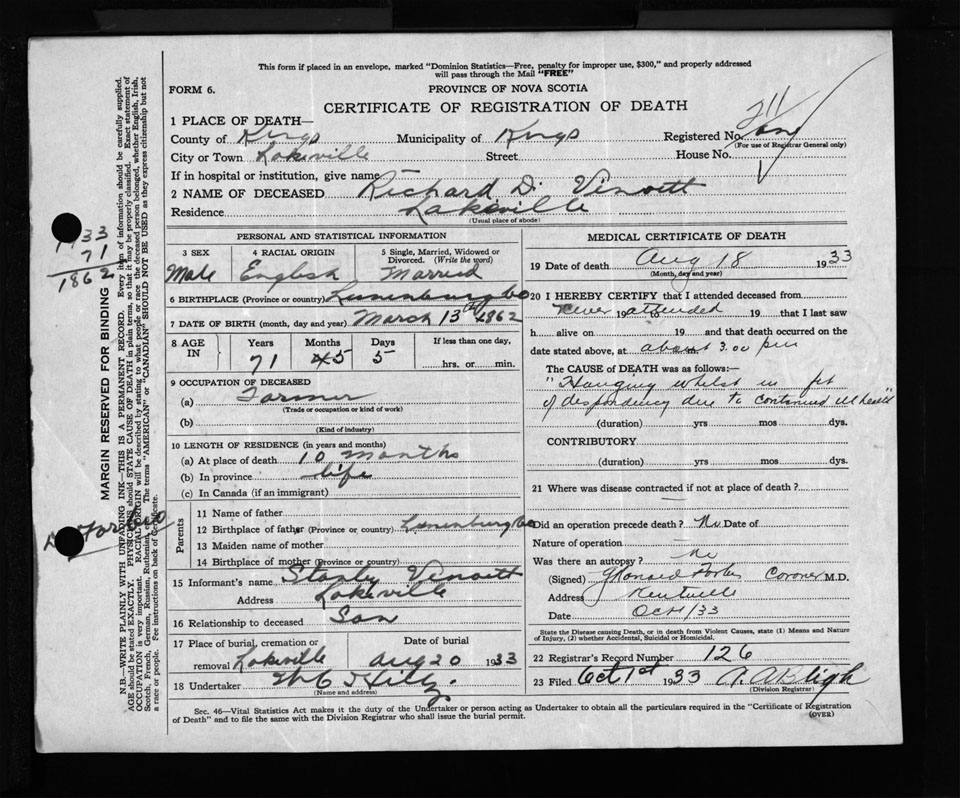 This form if placed in an envelope, marked "Dominion Statistics—Free, penalty for improper use, $300," and properly addressed
will pass through the Mail "FREE"
FORM 6.
PROVINCE OF NOVA SCOTIA
CERTIFICATE OF REGISTRATION OF DEATH
211
1 PLACE OF DEATH—
County of Kings Municipality of Kings Registered No.
(For use of Registrar General only)
City or Town Lakeville Street House No.
If in hospital or institution, give name
2 NAME OF DECEASED Richard D. Vinott
Residence Lakeville
(Usual place of abode)
PERSONAL AND STATISTICAL INFORMATION
3 SEX 4 RACIAL ORIGIN 5 Single, Married, Widowed or
Divorced. (Write the word)
Male English Married
6 BIRTHPLACE (Province or country) Lunenburg Co
7 DATE OF BIRTH (month, day and year) March 13th 1862
8 AGE IN Years Months Days If less than one day,
71 5 5 hrs. or min.
9 OCCUPATION OF DECEASED
(a) Farmer
(Trade or occupation or kind of work)
(b)
(Kind of industry)
10 LENGTH OF RESIDENCE (in years and months)
(a) At place of death 10 months
(b) In province life
(c) In Canada (if an immigrant)
Parents
11 Name of father
12 Birthplace of father (Province or country) Lunenburg Co
13 Maiden name of mother
14 Birthplace of mother (Province or country)
15 Informant's name Stanley Vinott
Address Lakeville
16 Relationship to deceased Son
17 Place of burial, cremation or Date of burial
removal Lakeville Aug 20 1933
18 Undertaker W C Hiltz
(Name and address)
MEDICAL CERTIFICATE OF DEATH
19 Date of death Aug 18 1933
(Month, day and year)
20 I HEREBY CERTIFY that I attended deceased from
Never attended 19 19 that I last saw
h alive on 19 and that death occurred on the
date stated above, at about 3.00 pm
The CAUSE of DEATH was as follows:—
"Hanging whilst in fit
of despondency due to continued ill health"
(duration) yrs mos dys.
CONTRIBUTORY
(duration) yrs mos dys.
21 Where was disease contracted if not at place of death?
Did an operation precede death? No Date of
Nature of operation
Was there an autopsy? No
(Signed) Forbes Coroner M.D.
Address Kentville
Date Oct 1/33
State the Disease causing Death, or in death from Violent Causes, state (1) Means and Nature
of Injury, (2) whether Accidental, Suicidal or Homicidal.
22 Registrar's Record Number 126
23 Filed Oct 1st 1933 A A Bligh
(Division Registrar)
Sec. 46—Vital Statistics Act makes it the duty of the Undertaker or person acting as Undertaker to obtain all the particulars required in the "Certificate of Registration
of Death" and to file the same with the Division Registrar who shall issue the burial permit.
(OVER)
1933
71
1862
MARGIN RESERVED FOR BINDING
N.B.—WRITE PLAINLY WITH UNFADING INK—THIS IS A PERMANENT RECORD. Every item of information should be carefully supplied.
AGE should be stated EXACTLY. PHYSICIANS should STATE CAUSE OF DEATH in plain terms, so that it may be properly classified. Exact statement of
OCCUPATION is very important. RACIAL ORIGIN will be described by stating to what people or race the deceased person belonged, whether English, Irish,
Scotch, French, German, Russian, Ruthenian, etc. The terms "AMERICAN" or "CANADIAN" SHOULD NOT BE USED as they express citizenship but not
a race or people. See instructions on back of Certificate.